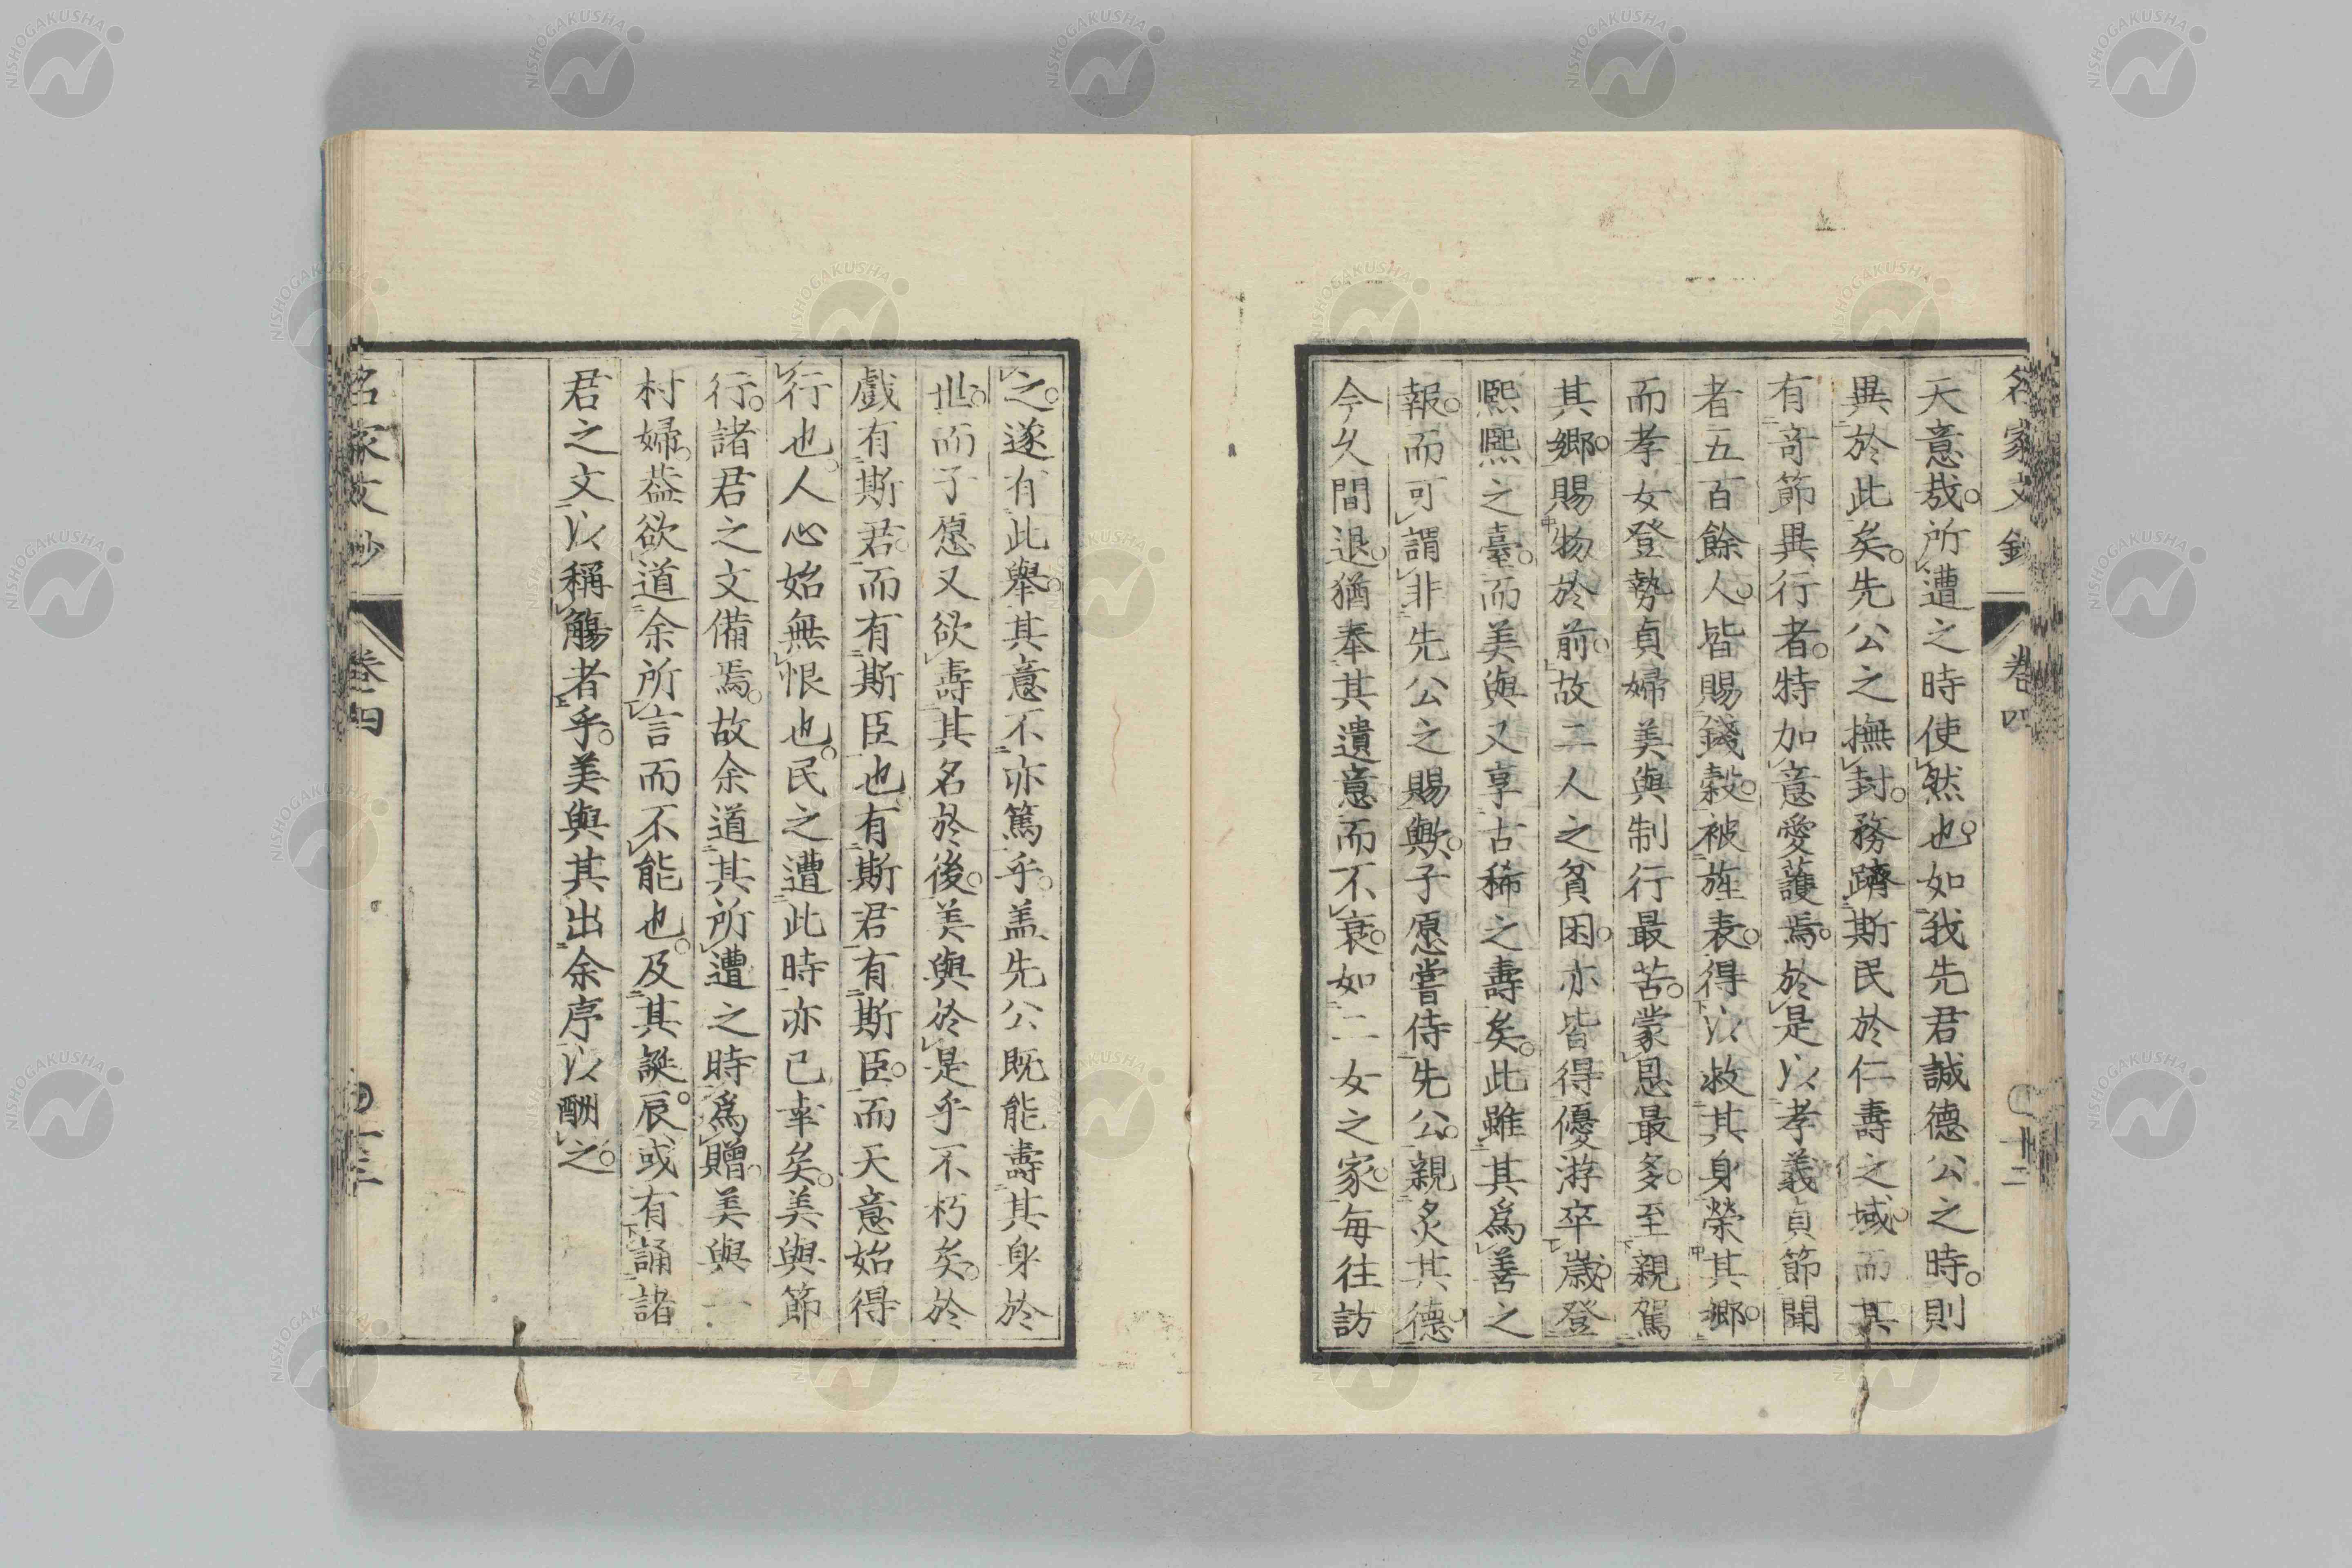 名家文鈔 卷四 十二
天意哉。所遭之時使然也。如我先君誠德公之時。則
異於此矣。先公之撫封。務躋斯民於仁壽之域。而其
有奇節異行者。特加意愛護焉。於是以孝義貞節聞
者五百餘人。皆賜錢穀。被旌表。得以救其身榮其鄉。
而孝女登勢貞婦美與制行最苦。蒙恩最多。至親駕
其鄉。賜物於前。故二人之貧困。亦皆得優游卒歲。登
熙熙之臺。而美與又享古稀之壽矣。此雖其爲善之
報。而可謂非先公之賜歟。子愿嘗侍先公。親炙其德。
今久間退。猶奉其遺意而不衰。如二女之家。每往訪
之。遂有此舉。其意不亦篤乎。盖先公既能壽其身於
世。而子愿又欲壽其名於後。美與於是乎不朽矣。於
戲有斯君。而有斯臣也。有斯君有斯臣。而天意始得
行也。人心始無恨也。民之遭此時亦已幸矣。美與節
行。諸君之文備焉。故余道其所遭之時爲贈。美與一
村婦。葢欲道余所言而不能也。及其誕辰。或有誦諸
君之文以稱觴者乎。美與其出余序以酬之。
名家文鈔 卷四 十二
NISHOGAKUSHA